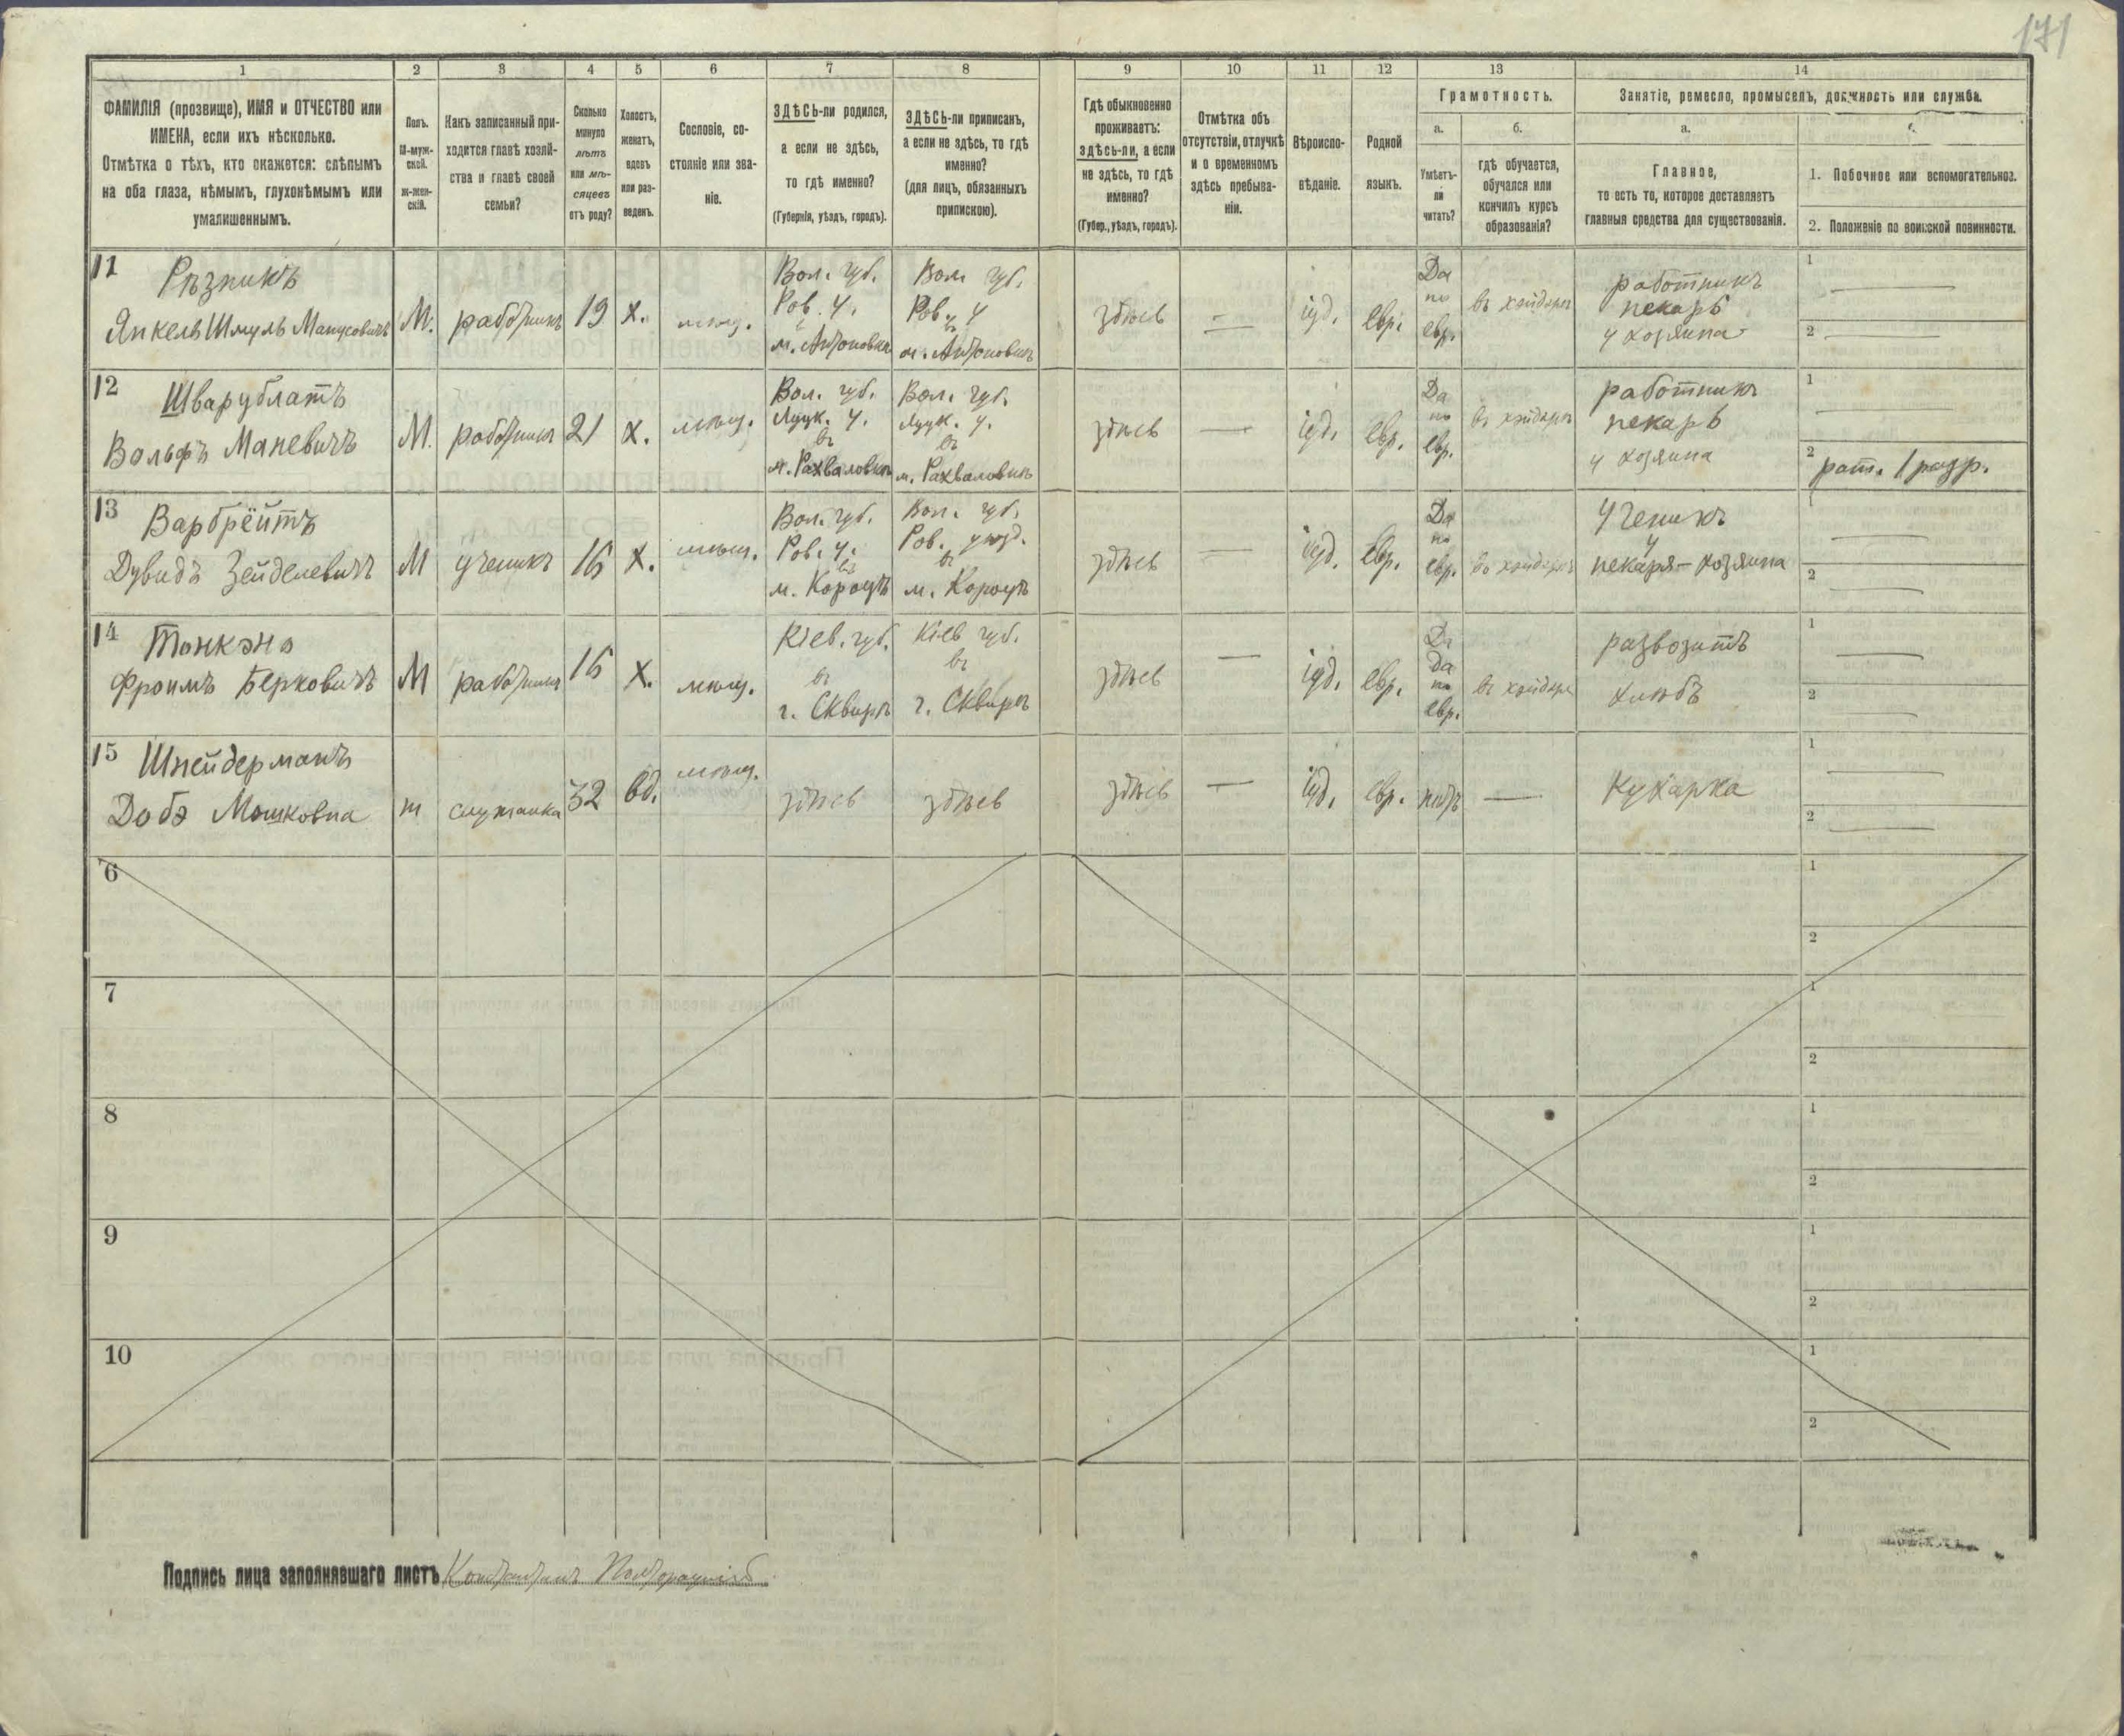 171
1 2 3 4 5 6 7 8 9 10 11 12 13 14
ФАМИЛІЯ (прозвище), ИМЯ и ОТЧЕСТВО или
ИМЕНА, если ихъ нѣсколько.
Отмѣтка о тѣхъ, кто окажется: слѣпымъ
на оба глаза, нѣмымъ, глухонѣмымъ или
умалишеннымъ.
Полъ.
М-муж-
ской.
Ж-жен-
скій.
Какъ записанный при-
ходится главѣ хозяй-
ства и главѣ своей
семьи?
Сколько
минуло
лѣтъ
или мѣ-
сяцевъ
отъ роду?
Холостъ,
женатъ,
вдовъ
или раз-
веденъ.
Сословіе, со-
стояніе или зва-
ніе.
ЗДѢСЬ-ли родился,
а если не здѣсь,
то гдѣ именно?
(Губернія, уѣздъ, городъ).
ЗДѢСЬ-ли приписанъ,
а если не здѣсь, то гдѣ
именно?
(для лицъ, обязанныхъ
припискою).
Гдѣ обыкновенно
проживаетъ:
здѣсь-ли, а если
не здѣсь, то гдѣ
именно?
(Губер., уѣздъ, городъ).
Отмѣтка объ
отсутствіи, отлучкѣ
и о временномъ
здѣсь пребыва-
ніи.
Вѣроиспо-
вѣданіе.
Родной
языкъ.
Грамотность.
а.
Умѣетъ-
ли
читать?
б.
гдѣ обучается,
обучался или
кончилъ курсъ
образованія?
Занятіе, ремесло, промыселъ, должность или служба.
а.
Главное,
то есть то, которое доставляетъ
главныя средства для существованія.
1. Побочное или вспомогательное.
2. Положеніе по воинской повинности.
11 Рѣзникъ
Янкель Шмуль Манусовичъ
М.
работникъ
19
х.
мѣщ.
Вол. губ.
Ров. у.
м. Антоновка
Вол. губ.
Ров. у
въ
м. Антоновкѣ
здѣсь
—
іуд.
евр.
Да
по
евр.
въ хэйдерѣ
работникъ
пекарь
у хозяина
1 —
2 —
12 Шварублатъ
Вольфъ Маневичъ
М.
работникъ
21
х.
мѣщ.
Вол. губ.
Луцк. у.
въ
м. Рахваловкѣ
Вол. губ.
Луцк. у.
въ
м. Рахваловкѣ
здѣсь
—
іуд.
евр.
Да
по
евр.
въ хэйдерѣ
работникъ
пекарь
у хозяина
1 —
2 рат. 1 разр.
13 Варбрёйтъ
Дувидъ Зейделевичъ
М
ученикъ
16
х.
мѣщ.
Вол. губ.
Ров. у.
въ
м. Корецѣ
Вол. губ.
Ров. уѣзд.
въ
м. Корецѣ
здѣсь
—
іуд.
евр.
Да
по
евр.
въ хэйдерѣ
Ученикъ
у
пекаря-хозяина
1 —
2 —
14 Тонконо
Фроимъ Берковичъ
М
работникъ
16
х.
мѣщ.
Кіев. губ.
въ
г. Сквирѣ
Кіев губ.
въ
г. Сквирѣ
здѣсь
—
іуд.
евр.
Да
да
по
евр.
въ хэйдерѣ
развозитъ
хлѣбъ
1 —
2 —
15 Шнейдерманъ
Доба Мошковна
ж
служанка
32
вд.
мѣщ.
здѣсь
здѣсь
здѣсь
—
іуд.
евр.
нѣтъ
—
Кухарка
1 —
2 —
6
1
2
7
1
2
8
1
2
9
1
2
10
1
2
Подпись лица заполнявшаго листъ Константинъ